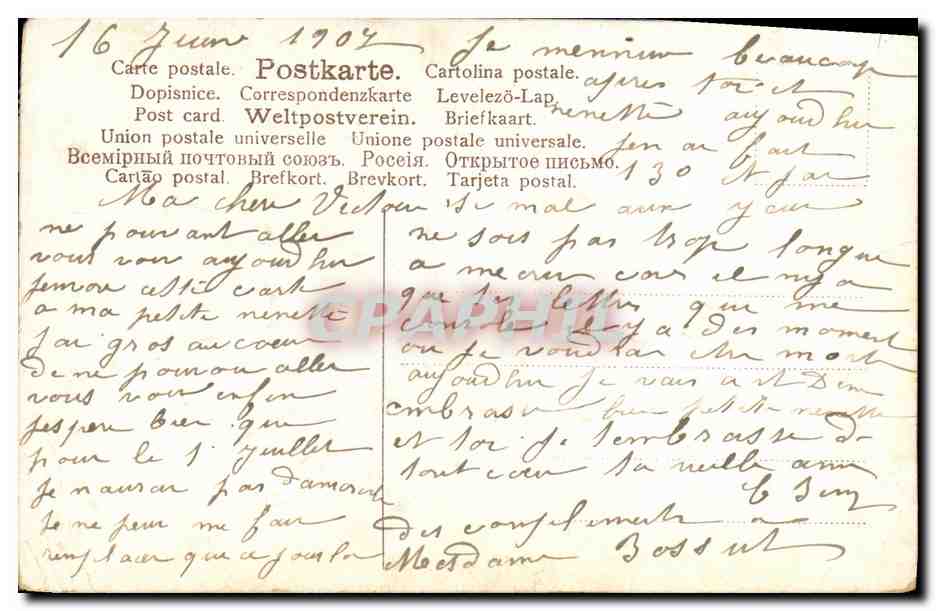 16 Juin 1907
Carte postale. Postkarte. Cartolina postale.
Dopisnice. Correspondenzkarte Levelezö-Lap.
Post card. Weltpostverein. Briefkaart.
Union postale universelle Unione postale universale.
Всемірный почтовый союзъ. Россія. Открытое письмо.
Cartão postal. Brefkort. Brevkort. Tarjeta postal.
Ma cher Victoir
ne pouvant aller
vous voir aujourdhui
jenvoie cette carte
a ma petite nenette
jai gros au coeur
de ne pouvoir aller
vous voir enfin
jespere bien que
pour le 1 Juillet
je naurai pas damoroch
je ne peux me fair
remplacer que ce jour la
Je mennuie beaucoup
apres toi et
nenette aujourdhui
jen ai fait
130 et jai
si mal aux yeux
ne sois pas trop longue
a mecrire car il nya
que tes lettres qui me
console il y a des moment
ou je voudrai etre mort
aujourdhui je vais a st Denis
embrasse bien petite nenette
et toi je tembrasse de
tout coeur ta vieille amie
des complements a
Mesdame Bossut
CPAPHIL